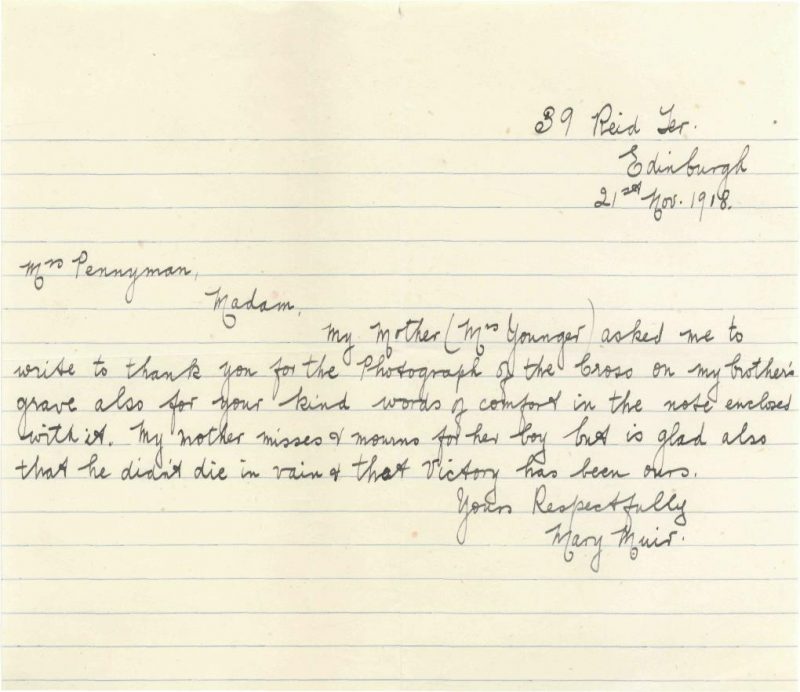 39 Reid Ter.
Edinburgh
21st Nov. 1918.
Mrs Pennyman,
Madam,
My Mother (Mrs Younger) asked me to
write to thank you for the Photograph of the Cross on my brother's
grave also for your kind words of comfort in the note enclosed
with it. My mother misses & mourns for her boy but is glad also
that he didn't die in vain & that Victory has been ours.
Yours Respectfully
Mary Muir.